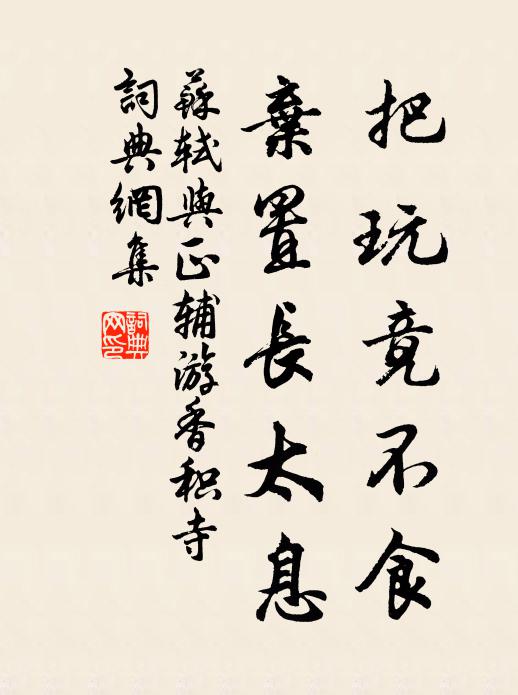 把玩竟不食
棄置長太息
蘇軾與正輔游香积寺
詞典網集
詞典
网印